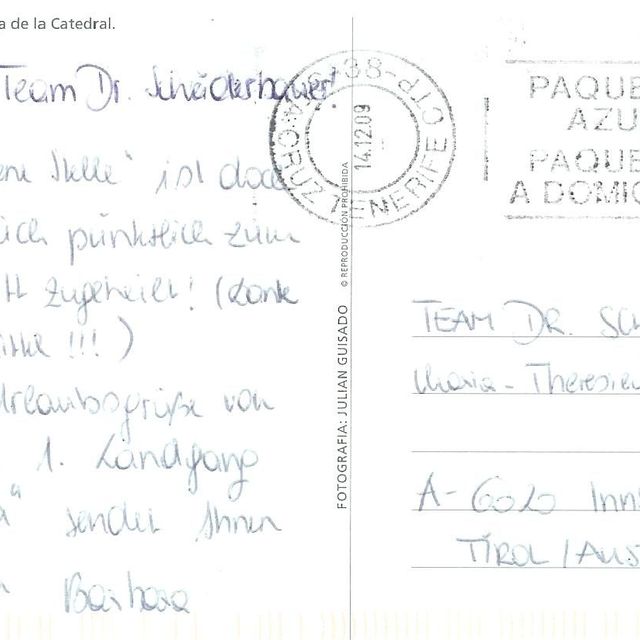 a de la Catedral.
Team Dr. Scheiderbauer!
ene Stelle" ist doch
lich pünktlich zum
tt zugeheilt! (Danke
itte !!!)
Urlaubsgrüße von
1. Landgang
a" sendet Ihnen
Barbara
38-CTP
STA CRUZ TENERIFE
14.12.09
PAQUE
AZU
PAQUE
A DOMIC
© REPRODUCCIÓN PROHIBIDA
FOTOGRAFIA: JULIAN GUISADO
TEAM DR. SC
Maria-Theresien
A-6020 Inn
TIROL / AUS